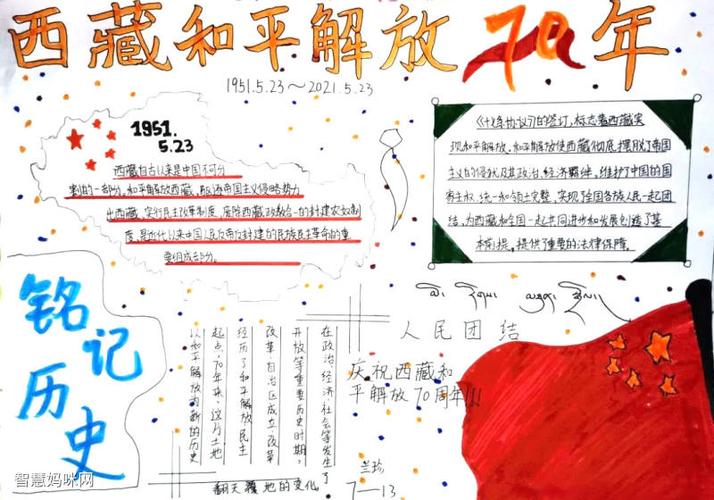 西藏和平解放70年
1951.5.23～2021.5.23
1951.
5.23
西藏自古以来是中国不可分
割的一部分,和平解放西藏,驱逐帝国主义侵略势力
出西藏,实行民主改革制度,废除西藏政教合一的封建农奴制
度,是近代以来中国人民反帝反封建的民族民主革命的重
要组成部分。
《十七条协议》的签订,标志着西藏实
现和平解放,和平解放使西藏彻底摆脱了帝国
主义的侵扰及其政治、经济羁绊,维护了中国的国
家主权、统一和领土完整,实现了全国各族人民一起团
结,为西藏和全国一起共同进步和发展创造了基
本前提,提供了重要的法律保障。
铭记
历史
人民团结
庆祝西藏和
平解放70周年!!!
在政治、经济、社会等发生了
开放等重要历史时期,
改革、自治区成立、改革
经历了和平解放、民主
起点,70年来,这片土地
以和平解放为新的历史
翻天覆地的变化
兰珍
7—13
智慧妈咪网